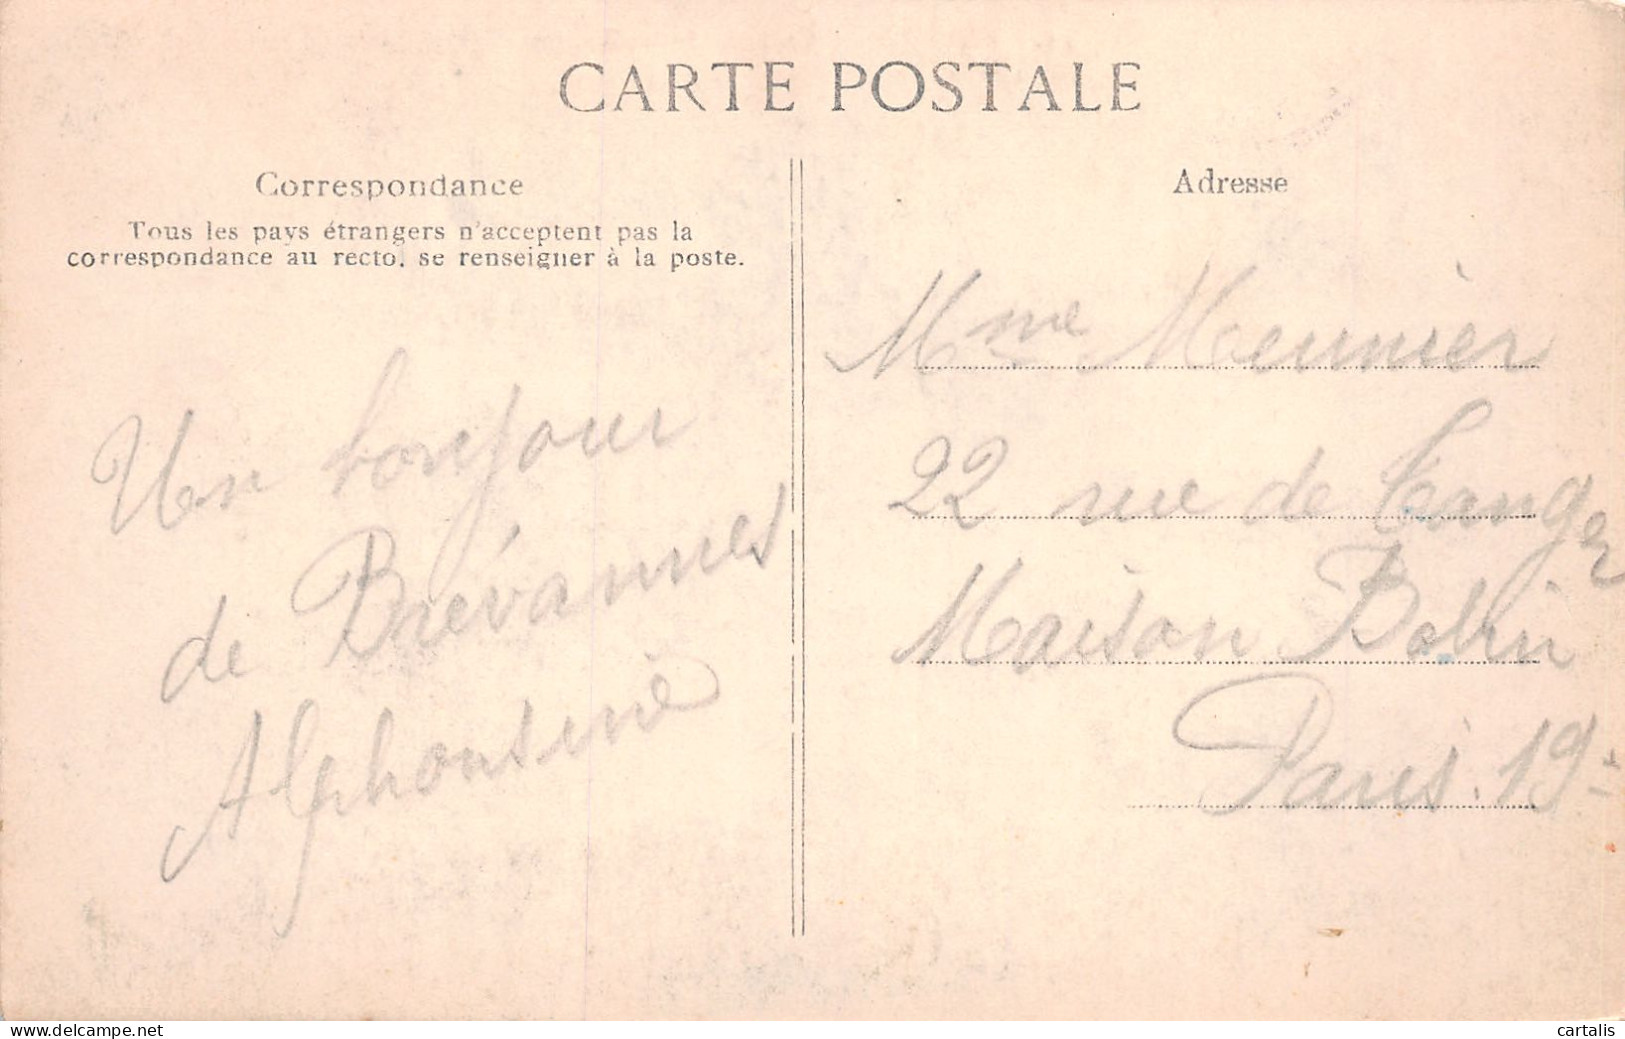 CARTE POSTALE
Correspondance
Tous les pays étrangers n'acceptent pas la
correspondance au recto, se renseigner à la poste.
Un bonjour
de Brévannes
Alphonsine
Adresse
Mme Meunier
22 rue de Tanger
Maison Bolvin
Paris. 19e
www.delcampe.net
cartalis